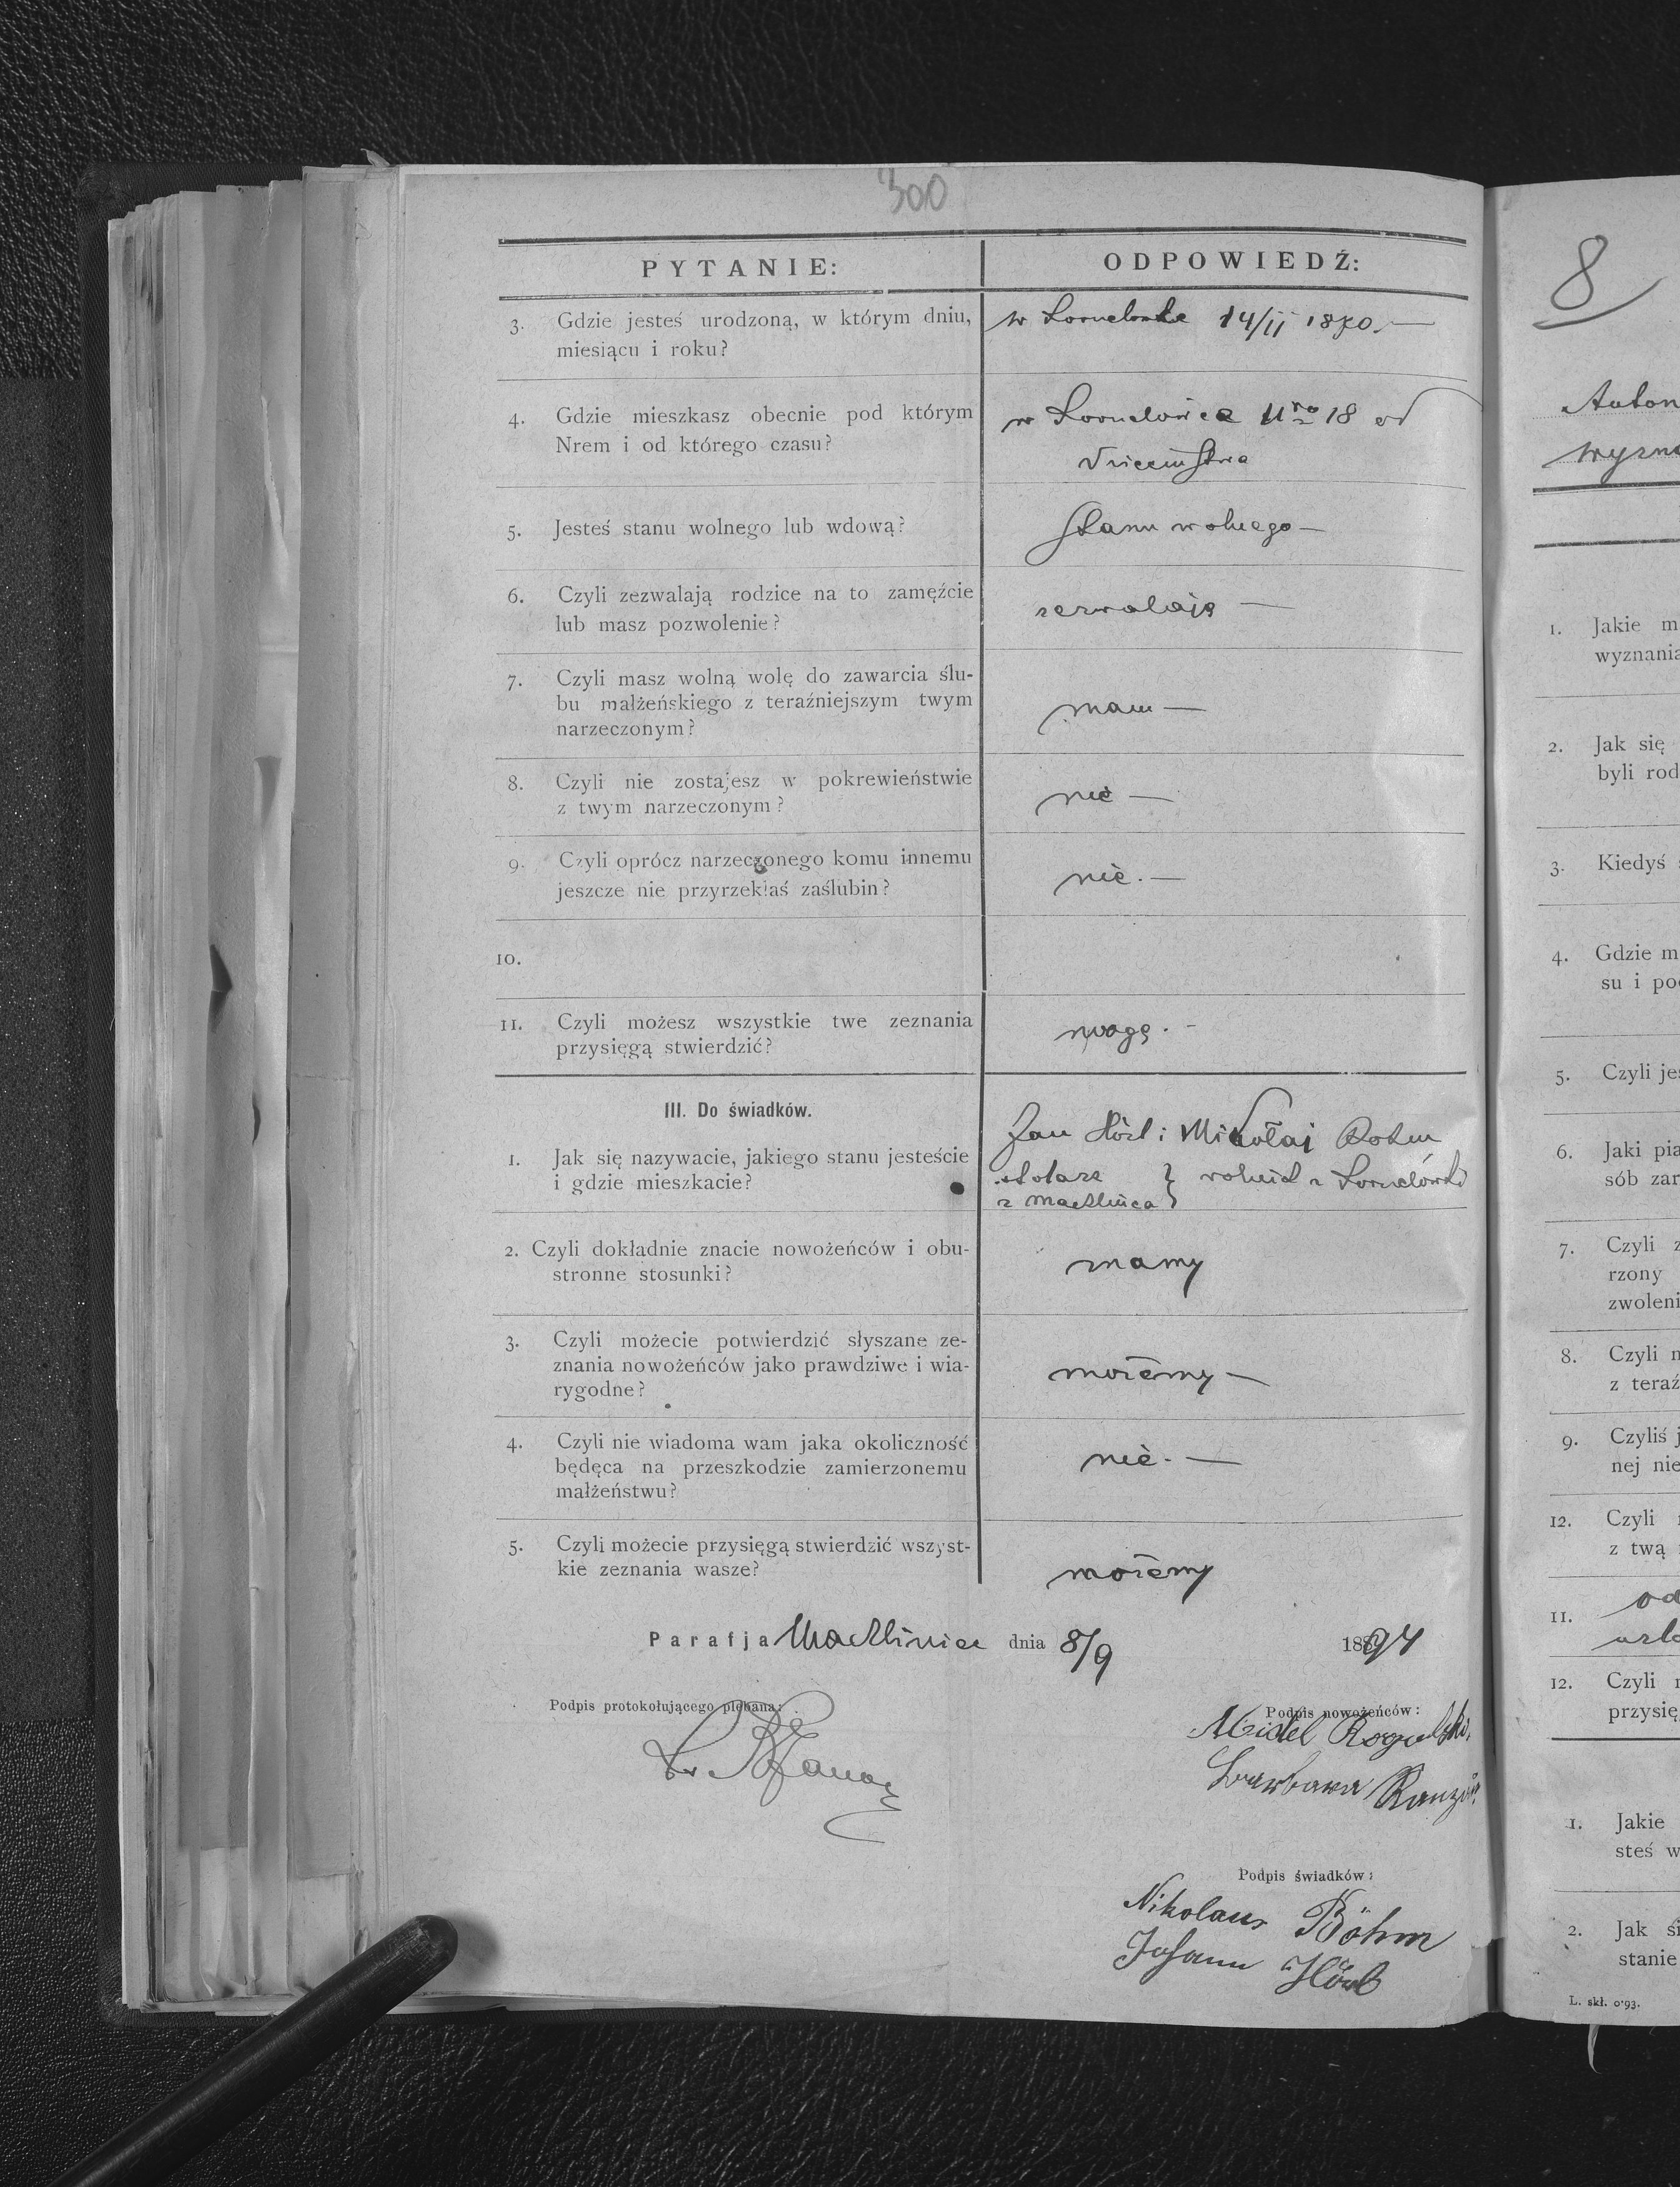 300
PYTANIE:
ODPOWIEDŹ:
3. Gdzie jesteś urodzoną, w którym dniu,
miesiącu i roku?
w 14/II 1870.—
4. Gdzie mieszkasz obecnie pod którym
Nrem i od którego czasu?
w Kornelówce Nro 18 od
dzieciństwa
5. Jesteś stanu wolnego lub wdową?
stanu wolnego —
6. Czyli zezwalają rodzice na to zamęźcie
lub masz pozwolenie?
zezwalają —
7. Czyli masz wolną wolę do zawarcia ślu-
bu małżeńskiego z teraźniejszym twym
narzeczonym?
mam —
8. Czyli nie zostajesz w pokrewieństwie
z twym narzeczonym?
nie —
9. Czyli oprócz narzeczonego komu innemu
jeszcze nie przyrzekłaś zaślubin?
nie. —
10.
11. Czyli możesz wszystkie twe zeznania
przysięgą stwierdzić?
mogę. -
III. Do świadków.
1. Jak się nazywacie, jakiego stanu jesteście
i gdzie mieszkacie?
Jan i Mikołaj Bohm
stolarz } rolnik z Kornelówki
z Machlińca
2. Czyli dokładnie znacie nowożeńców i obu-
stronne stosunki?
znamy
3. Czyli możecie potwierdzić słyszane ze-
znania nowożeńców jako prawdziwe i wia-
rygodne?
możemy —
4. Czyli nie wiadoma wam jaka okoliczność
będęca na przeszkodzie zamierzonemu
małżeństwu?
nie. —
5. Czyli możecie przysięgą stwierdzić wszyst-
kie zeznania wasze?
możemy
Parafja Machliniec dnia 8/9 1894
Podpis protokołującego plebana:
Podpis nowożeńców:
Michel Rogulski
Barbara
Podpis świadków:
Nikolaus Böhm
Johann
8
Anton
wyzna
1. Jakie m
wyznania
2. Jak się
byli rod
3. Kiedyś
4. Gdzie m
su i po
5. Czyli je
6. Jaki pia
sób zar
7. Czyli z
rzony
zwoleni
8. Czyli n
z teraź
9. Czyliś j
nej nie
12. Czyli
z twą
11. od
12. Czyli
przysię
1. Jakie
steś w
2. Jak si
stanie
L. skł. 0·93.